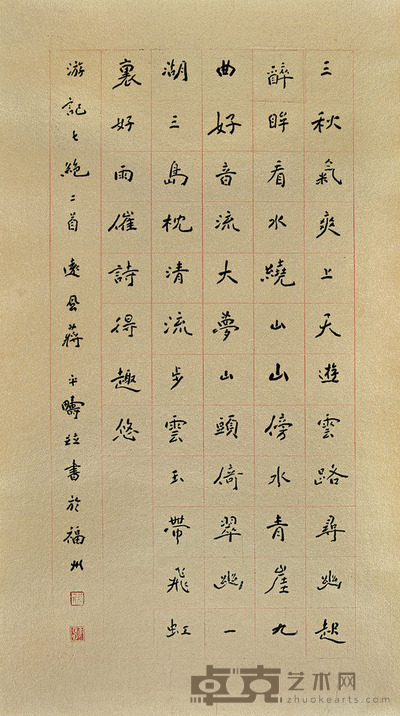 三秋氣爽上天遊雲路尋幽起
醉眸看水繞山山傍水青崖九
曲好音流大夢山頭倚翠幽一
湖三島枕清流步雲玉帶飛虹
裏好雨催詩得趣悠
游記七絕二首蔣平疇並書於福州
卓克艺术网
zhuokearts.com